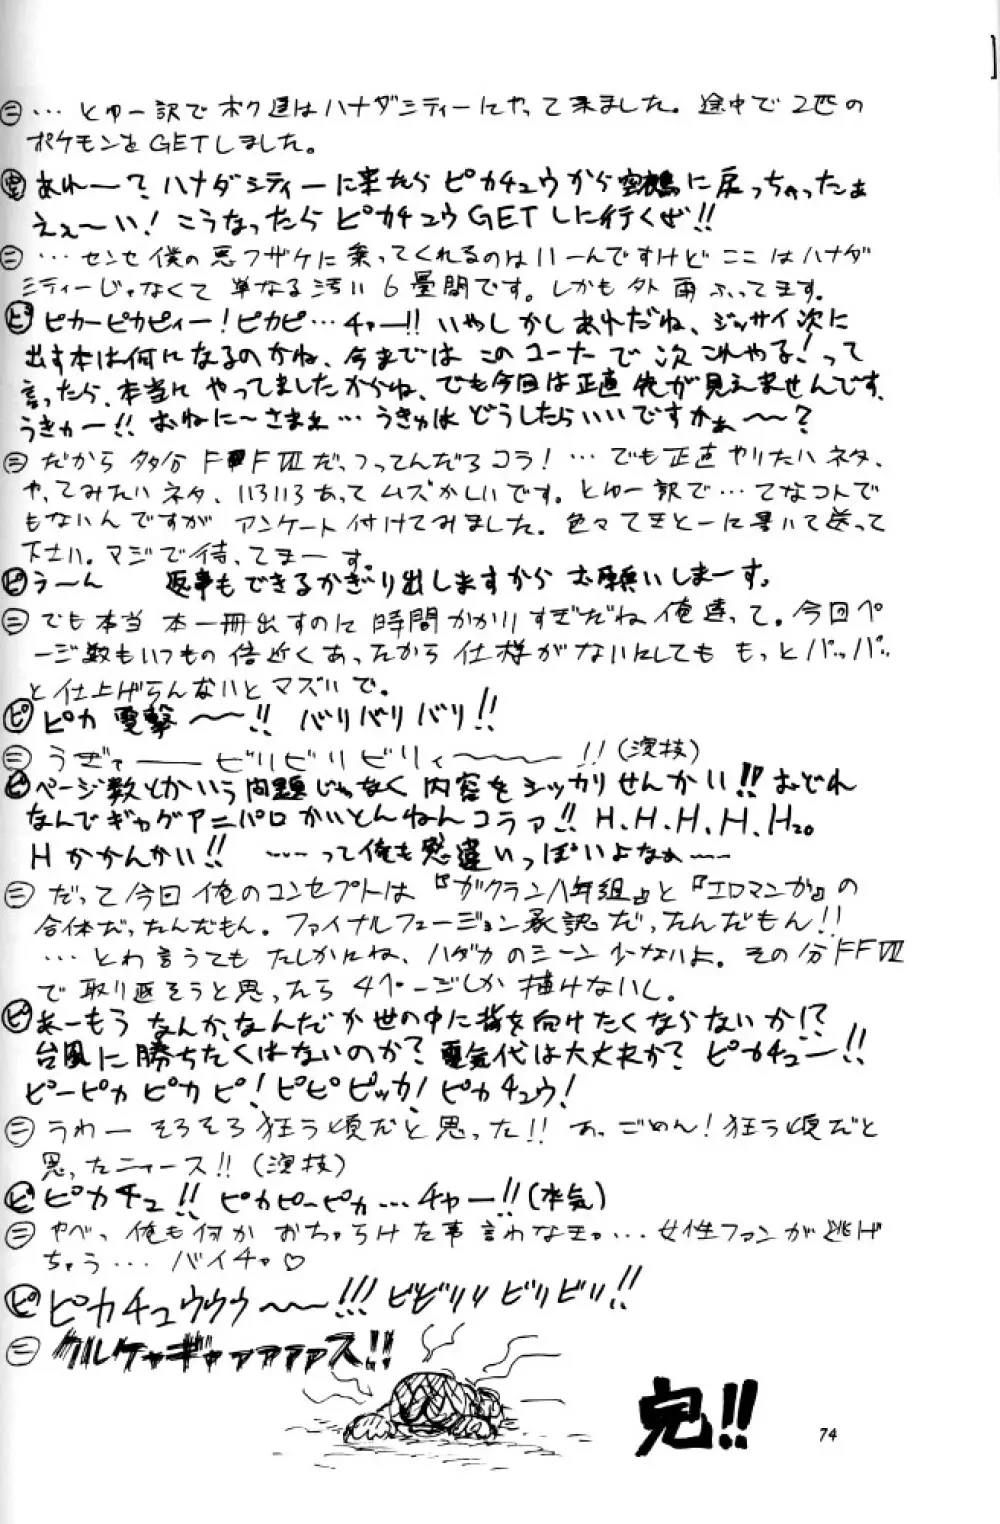 ㊁…とゆー訳でボク達はハナダシティーにやって来ました。途中で2匹の
ポケモンをGETしました。
㊢あれ〜？ハナダシティーに来たらピカチュウから空鶴に戻っちゃったぁ
えぇ〜い！こうなったらピカチュウGETしに行くぜ!!
㊁…センセ僕の悪フザケに乗ってくれるのはいーんですけどここはハナダ
シティーじゃなくて単なる汚い6畳間です。しかも外雨ふってます。
ピ ピカーピカピィー！ピカピ…チャー!!いやしかしあれだね、ジッサイ次に
出す本は何になるのかね、今まではこのコーナーで次これやる！って
言ったら、本当にやってましたからね、でも今回は正直先が見えませんです、
うきゅー!!おねに〜さまぇ…うきゅはどうしたらいいですかぁ〜〜？
㊁だから多分FFⅦだっつってんだろコラ！…でも正直やりたいネタ、
やってみたいネタ、いろいろあってムズかしいです。とゆー訳で…てなコトで
もないんですがアンケート付けてみました。色々てきとーに書いて送って
下さい。マジで待ってまーす。
ピ う〜ん 返事もできるかぎり出しますからお願いしまーす。
㊁でも本当本一冊出すのに時間かかりすぎだね俺達って。今回ペ
ージ数もいつもの倍近くあったから仕様がないにしてももっとパッパッ
と仕上げらんないとマズいで。
ピ ピカ電撃〜〜!!バリバリバリ!!
㊁うぎゃ――ビリビリビリィ〜〜〜!!(演技)
ピ ページ数とかいう問題じゃなく内容をシッカリせんかい!!おどれ
なんでギャグアニパロかいとんねんコラァ!!H.H.H.H.H20
Hかかんかい!!……って俺も勘違いっぽいよなぁ〜〜
㊁だって今回俺のコンセプトは『ガクラン八年組』と『エロマンガ』の
合体だったんだもん。ファイナルフュージョン承認だったんだもん!!
…とわ言うてもたしかにね、ハダカのシーン少ないよ。その分FFⅦ
で取り返そうと思ったら4ページしか描けないし。
ピ あーもうなんか、なんだか世の中に背を向けたくならないか!?
台風に勝ちたくはないのか？電気代は大丈夫か？ピカチュー!!
ピーピカピカピ！ピピピッカ！ピカチュウ！
㊁うわーそろそろ狂う頃だと思った!!あ、ごめん！狂う頃だと
思ったニャース!!(演技)
ピ ピカチュ!!ピカピーピカ…チャー!!(本気)
㊁やべっ俺も何かおちゃらけた事言わなきゃ…女性ファンが逃げ
ちゃう…バイチャ♡
ピ ピカチュウウウ〜〜!!!ビビリリビリビリ!!
㊁クルケャギャァァァァァス!!
完!!
74